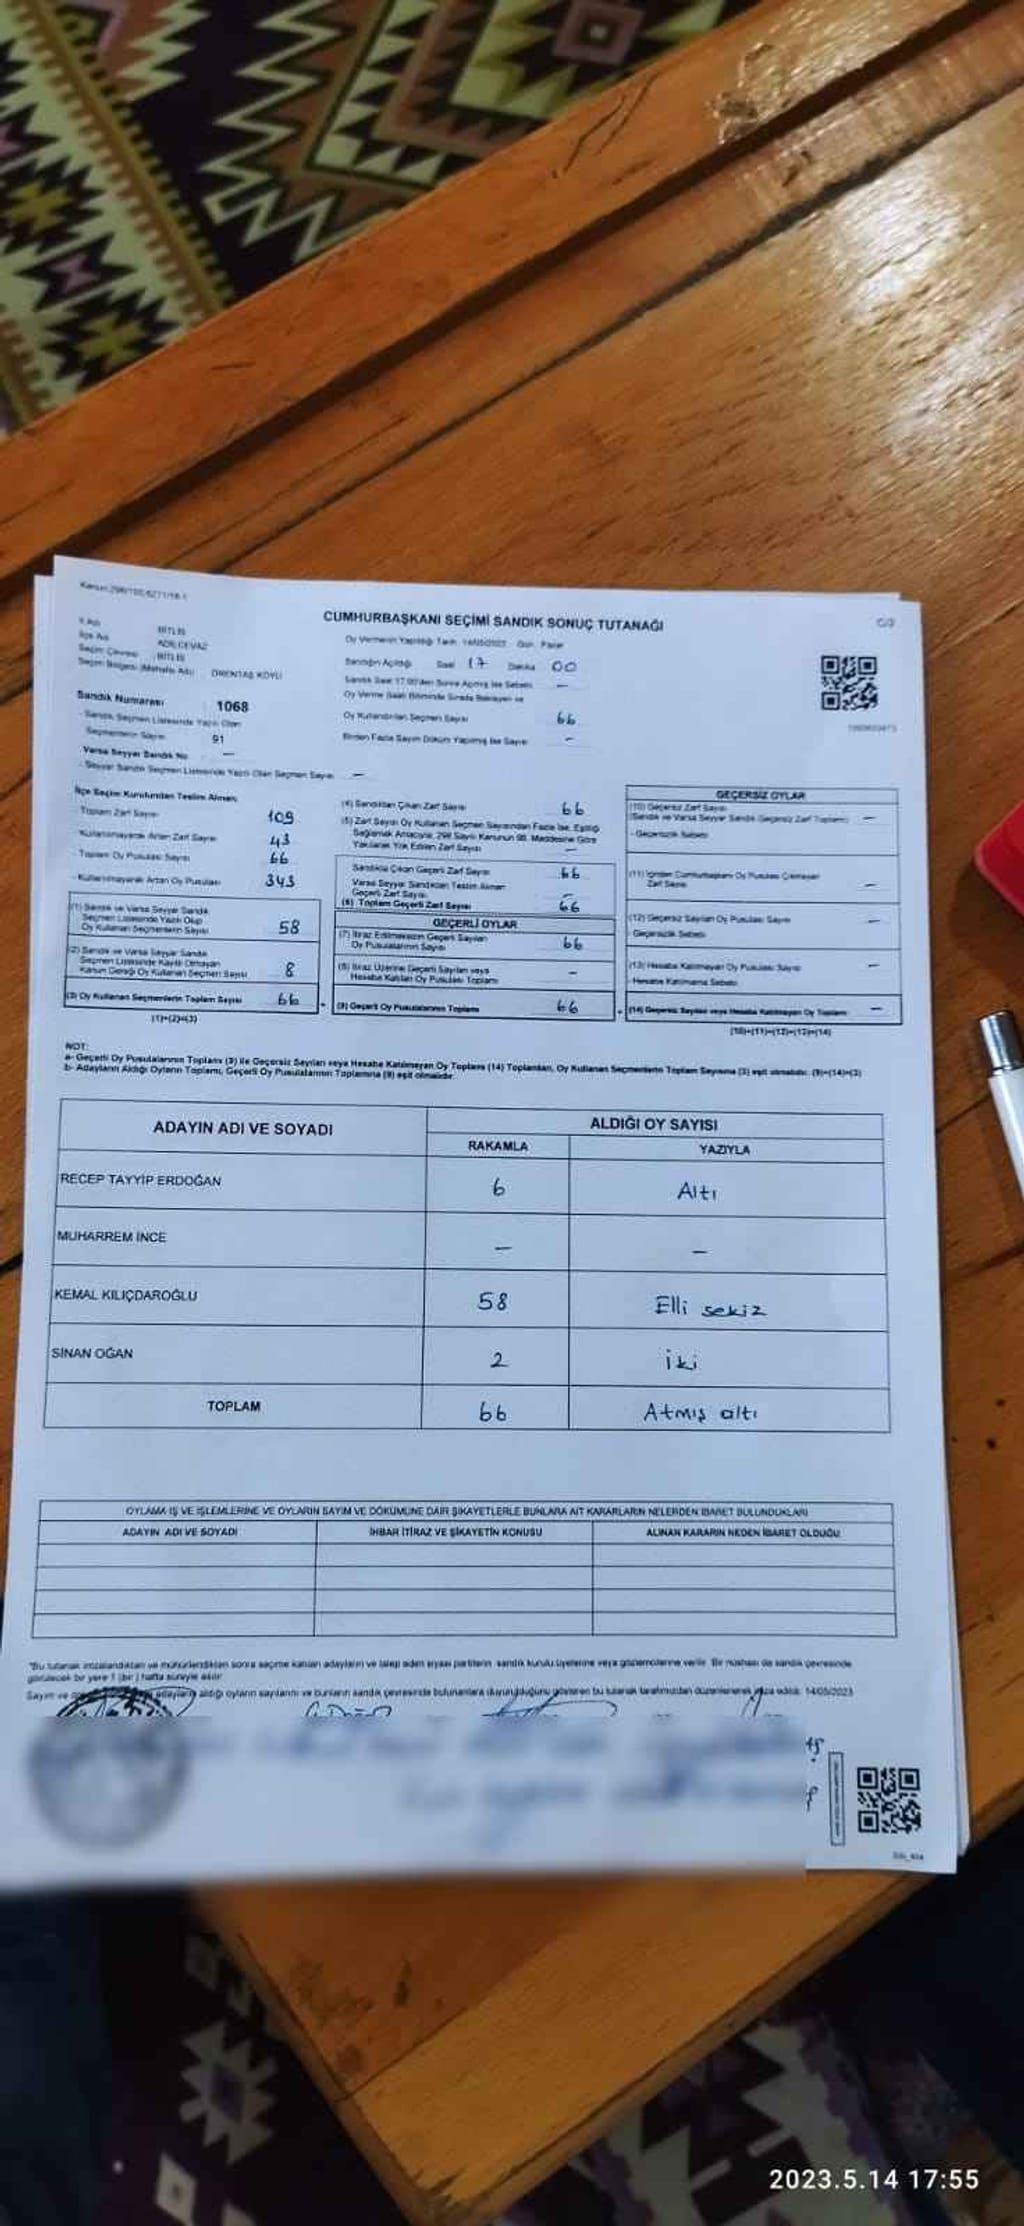 Kanun:298/100,6271/18-1
CUMHURBAŞKANI SEÇİMİ SANDIK SONUÇ TUTANAĞI
İl Adı BİTLİS
İlçe Adı ADİLCEVAZ
Seçim Çevresi BİTLİS
Seçim Bölgesi (Mahalle Adı) KÖYÜ
Oy Vermenin Yapıldığı Tarih 14/05/2023 Gün Pazar
Sandığın Açıldığı Saat 17 Dakika 00
Sandık Saat 17.00'den Sonra Açılmış İse Sebebi —
Oy Verme Saati Bitiminde Sırada Bekleyen ve
Oy Kullandırılan Seçmen Sayısı 66
Birden Fazla Sayım Döküm Yapılmış İse Sayısı -
Sandık Numarası 1068
- Sandık Seçmen Listesinde Yazılı Olan
Seçmenlerin Sayısı 91
Varsa Seyyar Sandık No —
- Seyyar Sandık Seçmen Listesinde Yazılı Olan Seçmen Sayısı —
İlçe Seçim Kurulundan Teslim Alınan;
- Toplam Zarf Sayısı 109
- Kullanılmayarak Artan Zarf Sayısı 43
- Toplam Oy Pusulası Sayısı 66
- Kullanılmayarak Artan Oy Pusulası 343
(1) Sandık ve Varsa Seyyar Sandık
Seçmen Listesinde Yazılı Olup
Oy Kullanan Seçmenlerin Sayısı 58
(2) Sandık ve Varsa Seyyar Sandık
Seçmen Listesinde Kayıtlı Olmayan
Kanun Gereği Oy Kullanan Seçmen Sayısı 8
(3) Oy Kullanan Seçmenlerin Toplam Sayısı 66
(1)+(2)=(3)
(4) Sandıktan Çıkan Zarf Sayısı 66
(5) Zarf Sayısı Oy Kullanan Seçmen Sayısından Fazla İse, Eşitliği
Sağlamak Amacıyla, 298 Sayılı Kanunun 98. Maddesine Göre
Yakılarak Yok Edilen Zarf Sayısı —
Sandıkta Çıkan Geçerli Zarf Sayısı 66
Varsa Seyyar Sandıktan Teslim Alınan
Geçerli Zarf Sayısı —
(6) Toplam Geçerli Zarf Sayısı 66
GEÇERLİ OYLAR
(7) İtiraz Edilmeksizin Geçerli Sayılan
Oy Pusulalarının Sayısı 66
(8) İtiraz Üzerine Geçerli Sayılan veya
Hesaba Katılan Oy Pusulası Toplamı —
(9) Geçerli Oy Pusulalarının Toplamı 66
GEÇERSİZ OYLAR
(10) Geçersiz Zarf Sayısı
(Sandık ve Varsa Seyyar Sandık Geçersiz Zarf Toplamı) —
- Geçersizlik Sebebi
(11) İçinden Cumhurbaşkanı Oy Pusulası Çıkmayan
Zarf Sayısı —
(12) Geçersiz Sayılan Oy Pusulası Sayısı —
- Geçersizlik Sebebi
(13) Hesaba Katılmayan Oy Pusulası Sayısı —
- Hesaba Katılmama Sebebi
(14) Geçersiz Sayılan veya Hesaba Katılmayan Oy Toplamı —
(10)+(11)+(12)+(13)=(14)
NOT:
a- Geçerli Oy Pusulalarının Toplamı (9) ile Geçersiz Sayılan veya Hesaba Katılmayan Oy Toplamı (14) Toplamları, Oy Kullanan Seçmenlerin Toplam Sayısına (3) eşit olmalıdır. (9)+(14)=(3)
b- Adayların Aldığı Oyların Toplamı, Geçerli Oy Pusulalarının Toplamına (9) eşit olmalıdır.
ADAYIN ADI VE SOYADI ALDIĞI OY SAYISI
RAKAMLA YAZIYLA
RECEP TAYYİP ERDOĞAN 6 Altı
MUHARREM İNCE — —
KEMAL KILIÇDAROĞLU 58 Elli sekiz
SİNAN OĞAN 2 iki
TOPLAM 66 Atmış altı
OYLAMA İŞ VE İŞLEMLERİNE VE OYLARIN SAYIM VE DÖKÜMÜNE DAİR ŞİKAYETLERLE BUNLARA AİT KARARLARIN NELERDEN İBARET BULUNDUKLARI
ADAYIN ADI VE SOYADI İHBAR İTİRAZ VE ŞİKAYETİN KONUSU ALINAN KARARIN NEDEN İBARET OLDUĞU
*Bu tutanak imzalandıktan ve mühürlendikten sonra seçime katılan adayların ve talep eden siyasi partilerin sandık kurulu üyelerine veya gözlemcilerine verilir. Bir nüshası da sandık çevresinde
görülecek bir yere 1 (bir) hafta süreyle asılır.
Sayım ve adayların aldığı oyların sayılarını ve bunların sandık çevresinde bulunanlara duyurulduğunu gösteren bu tutanak tarafımızdan düzenlenerek imza edildi. 14/05/2023
2023.5.14 17:55